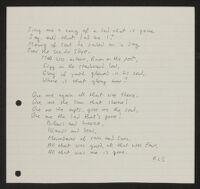 Sing me a song of a lad that is gone.
Say, could that lad be I?
Merry of soul he sailed on a day
Over the sea to Skye.
Mull was astern, Rum on the port,
Eigg on the starboard bow;
Glory of youth glowed in his soul;
Where is that glory now?
Give me again all that was there,
Give me the sun that shone!
Give me the eyes, give me the soul,
Give me the lad that's gone!
Billow and breeze,
Islands and seas,
Mountains of rain and sun,
All that was good, all that was fair,
All that was me is gone.
R.L.S.